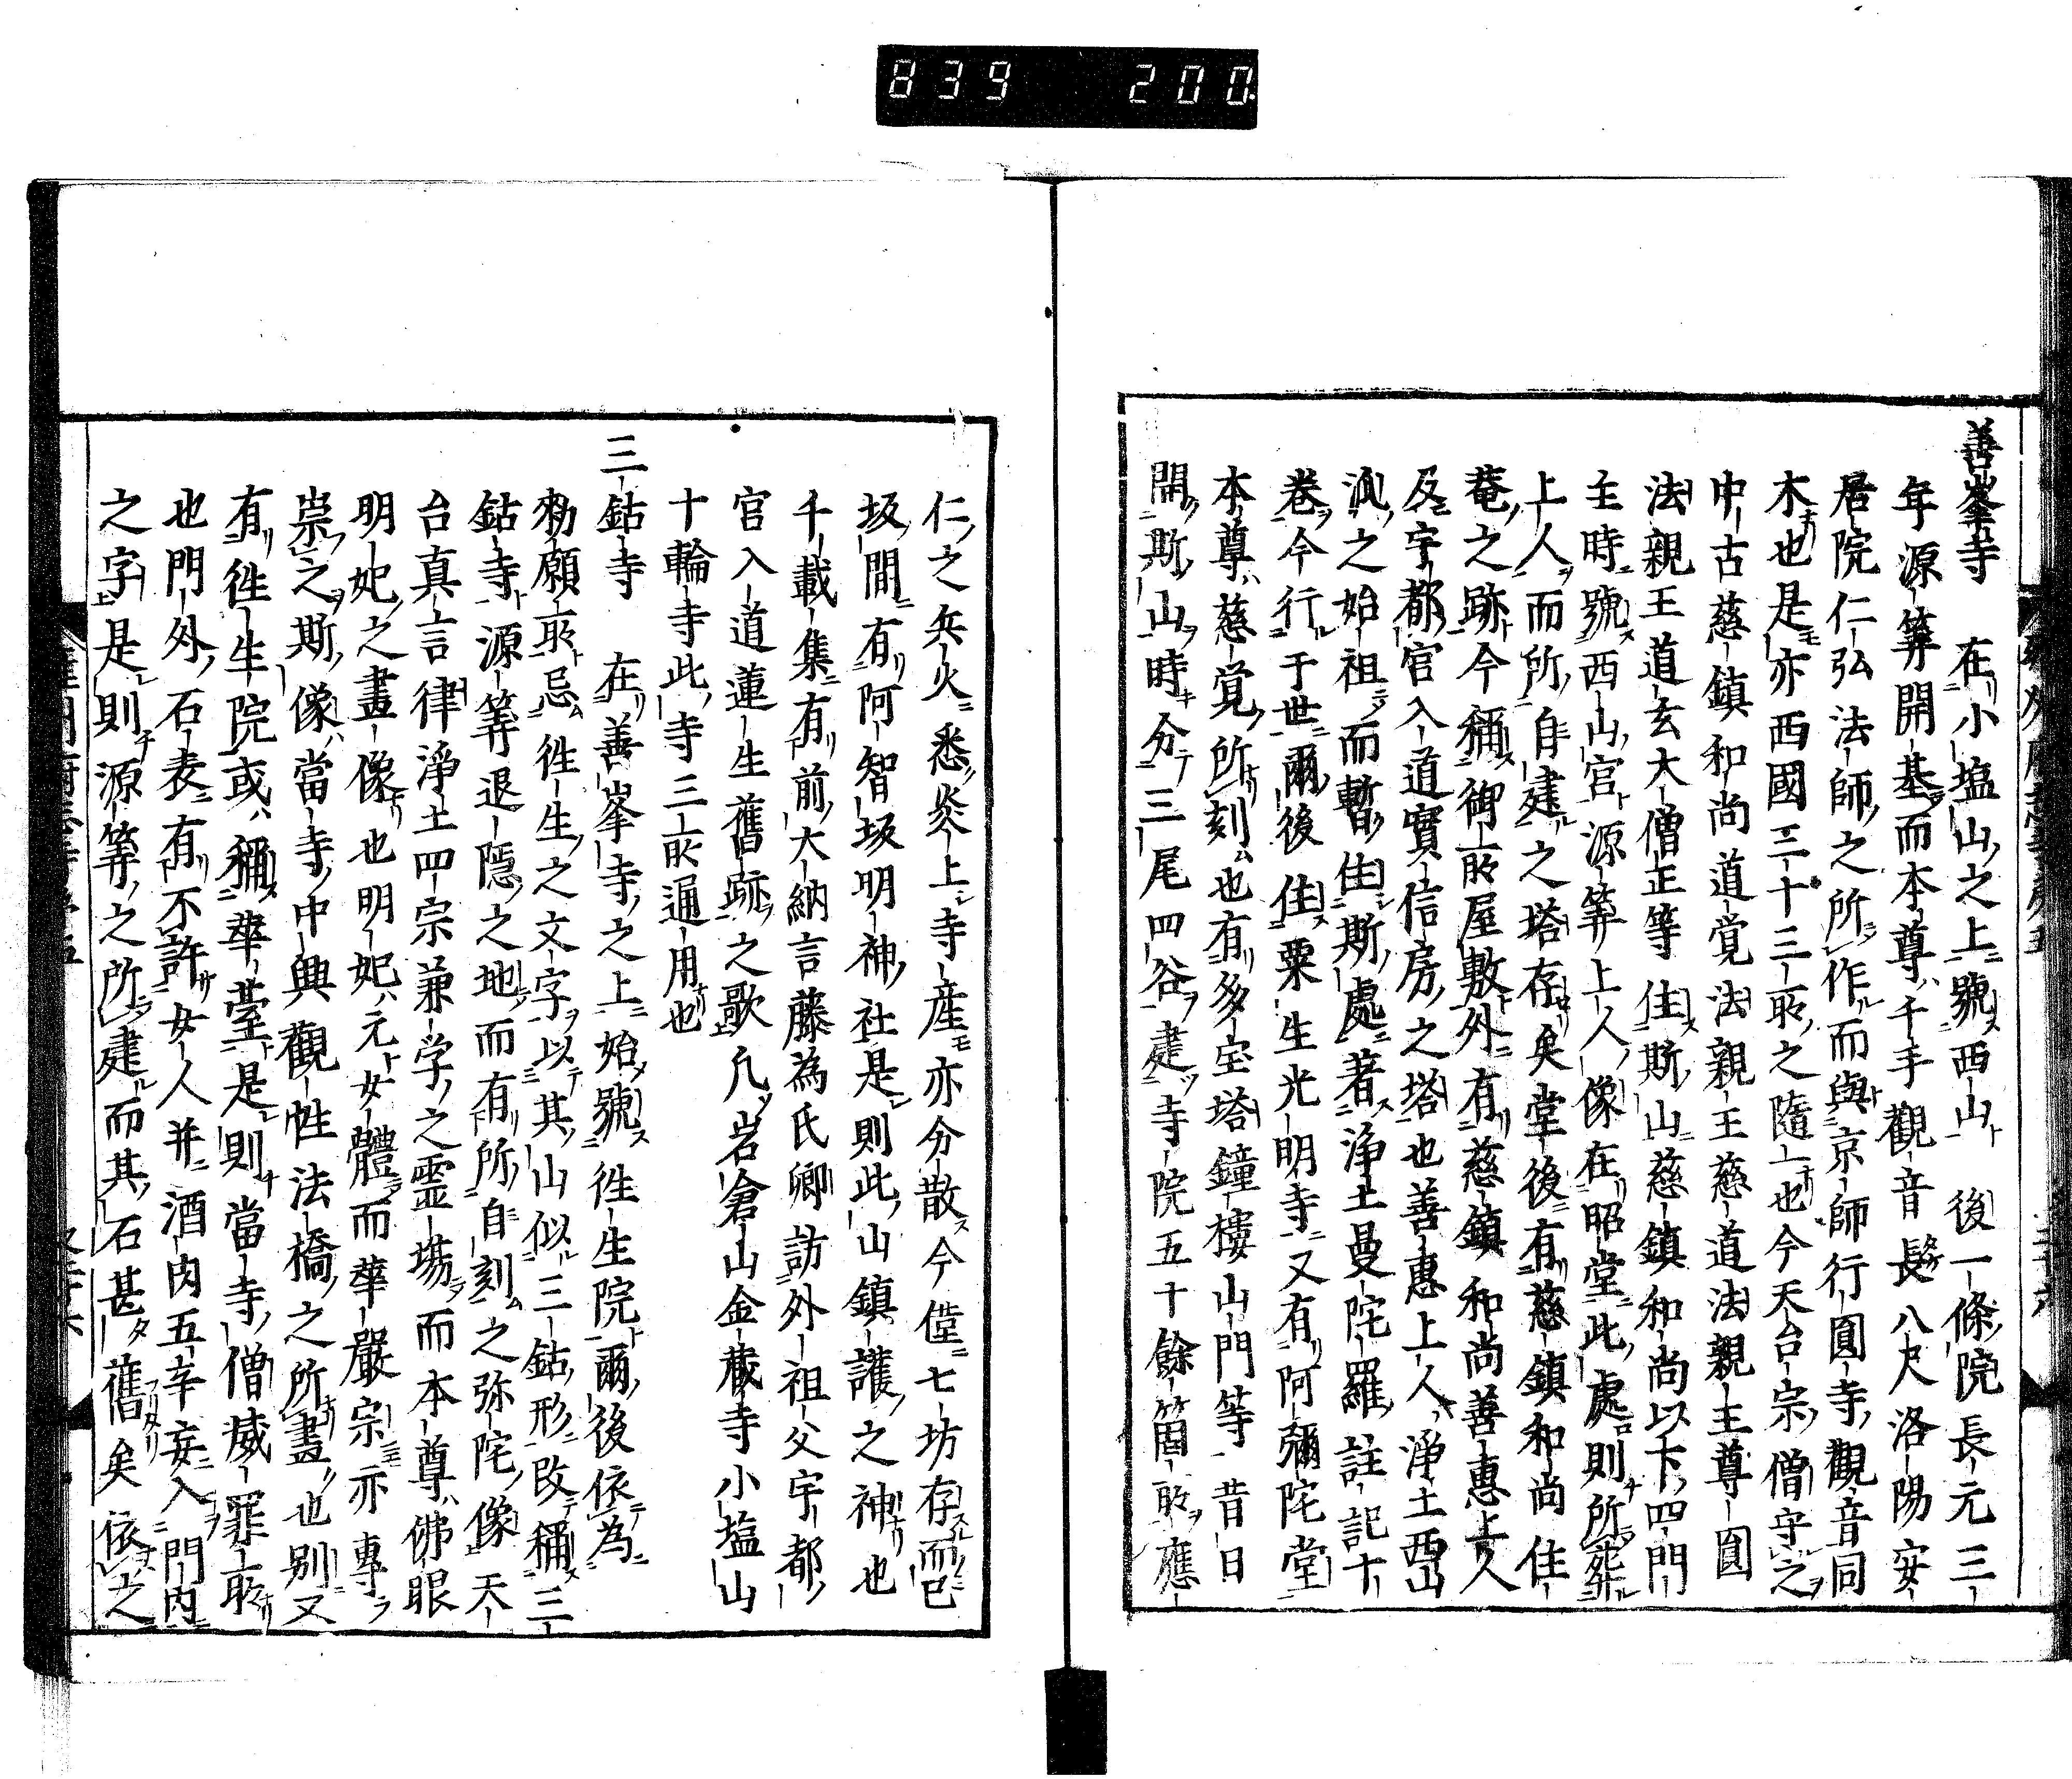 839 200
善峯寺 在小塩山之上號西山 後一條院長元三
年源筭開基而本尊千手觀音長八尺洛陽安
居院仁弘法師之所作而與京師行圓寺觀音同
木也是亦西國三十三所之隨一也今天台宗僧守之
中古慈鎮和尚道覚法親王慈道法親王尊圓
法親王道玄大僧正等住斯山慈鎮和尚以下四門
主時號西山宮源筭上人像在昭堂此處則所葬
上人而所自建之塔存矣堂後有慈鎮和尚住
菴之跡今稱御所屋敷外有慈鎮和尚善惠上人
及宇都宮入道實信房之塔也善惠上人淨土西山
流之始祖而暫住斯處著淨土曼陀羅註記十
巻今行于世爾後住粟生光明寺又有阿彌陀堂
本尊慈覚所刻也有多宝塔鐘樓山門等 昔日
開斯山時分三尾四谷建寺院五十餘箇所應
仁之兵火悉炎上寺産亦分散今僅七坊存而已
坂間有阿智坂明神社是則此山鎮護之神也
千載集有前大納言藤為氏卿訪外祖父宇都
宮入道蓮生舊跡之歌凡岩倉山金藏寺小塩山
十輪寺此寺三所通用也
三鈷寺 在善峯寺之上始號徃生院爾後依為
勅願所忌徃生之文字以其山似三鈷形改稱三
鈷寺源筭退隱之地而有所自刻之弥陀像天
台真言律淨土四宗兼学之靈塲而本尊佛眼
明妃之畫像也明妃元女體而華嚴宗亦專
崇之斯像當寺中興觀性法橋之所畫也別又
有徃生院或稱華䑓是則當寺僧威罪所
也門外石表有不許女人并酒肉五辛妄入門内
之字是則源筭之所建而其石甚舊矣依之